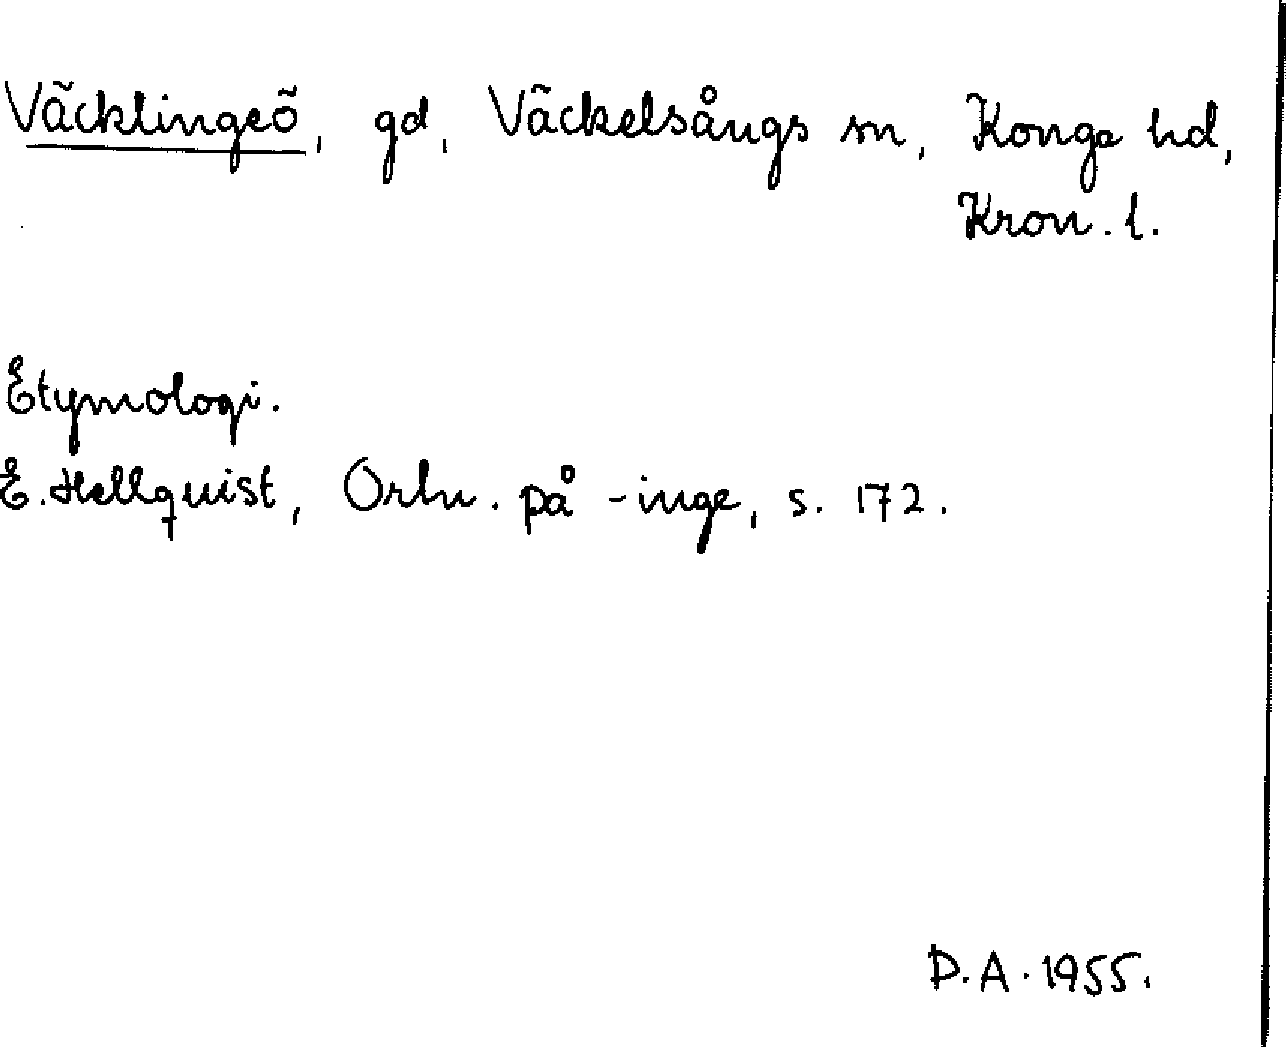 Väcklingeö, gd, Väckelsångs sn, Konga hd,
Kron. l.
Etymologi.
E. Hellquist, Ortn. på -inge, s. 172.
D.A. 1955.